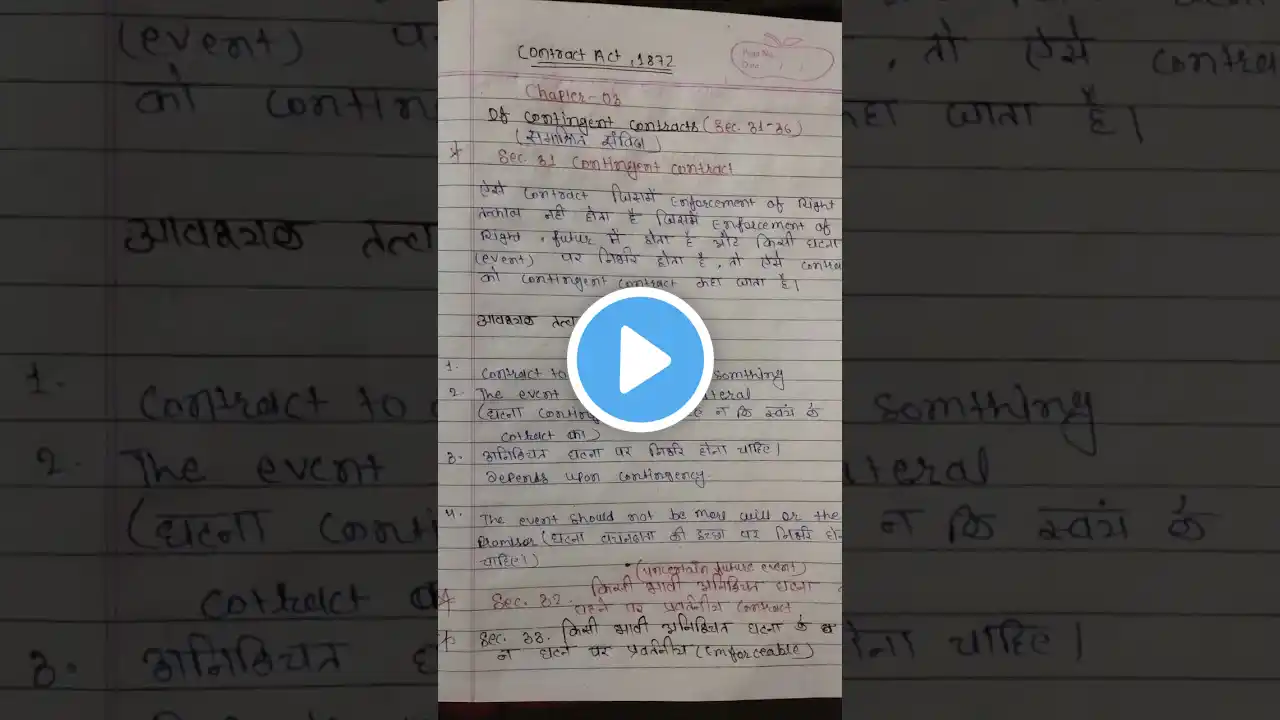 Contract Act, 1872
Page No.
Date
Chapter-03
Of contingent contracts (Sec. 31-36)
(समाश्रित संविदा)
Sec. 31 Contingent contract
ऐसे Contract जिसमें Enforcement of Right
तत्काल नहीं होता है जिसमें Enforcement of
Right, futur में होता है और किसी घटना
(event) पर निर्भर होता है, तो ऐसे contra
को contingent contract कहा जाता है।
आवश्यक तत्व
1. Contract to somthing
2. The event teral
(घटना contin न कि स्वयं के
cotract का)
3. अनिश्चित घटना पर निर्भर होना चाहिए।
Depends upon contingency.
4. The event should not be mere will or the
Promisor (घटना वचनदाता की इच्छा पर निर्भर
चाहिए।)
(uncertain future event)
Sec. 32. किसी भावी अनिश्चित घटना
घटने पर प्रवर्तनीय contract
Sec. 33. किसी भावी अनिश्चित घटना के
न घटने पर प्रवर्तनीय (Emforceable)